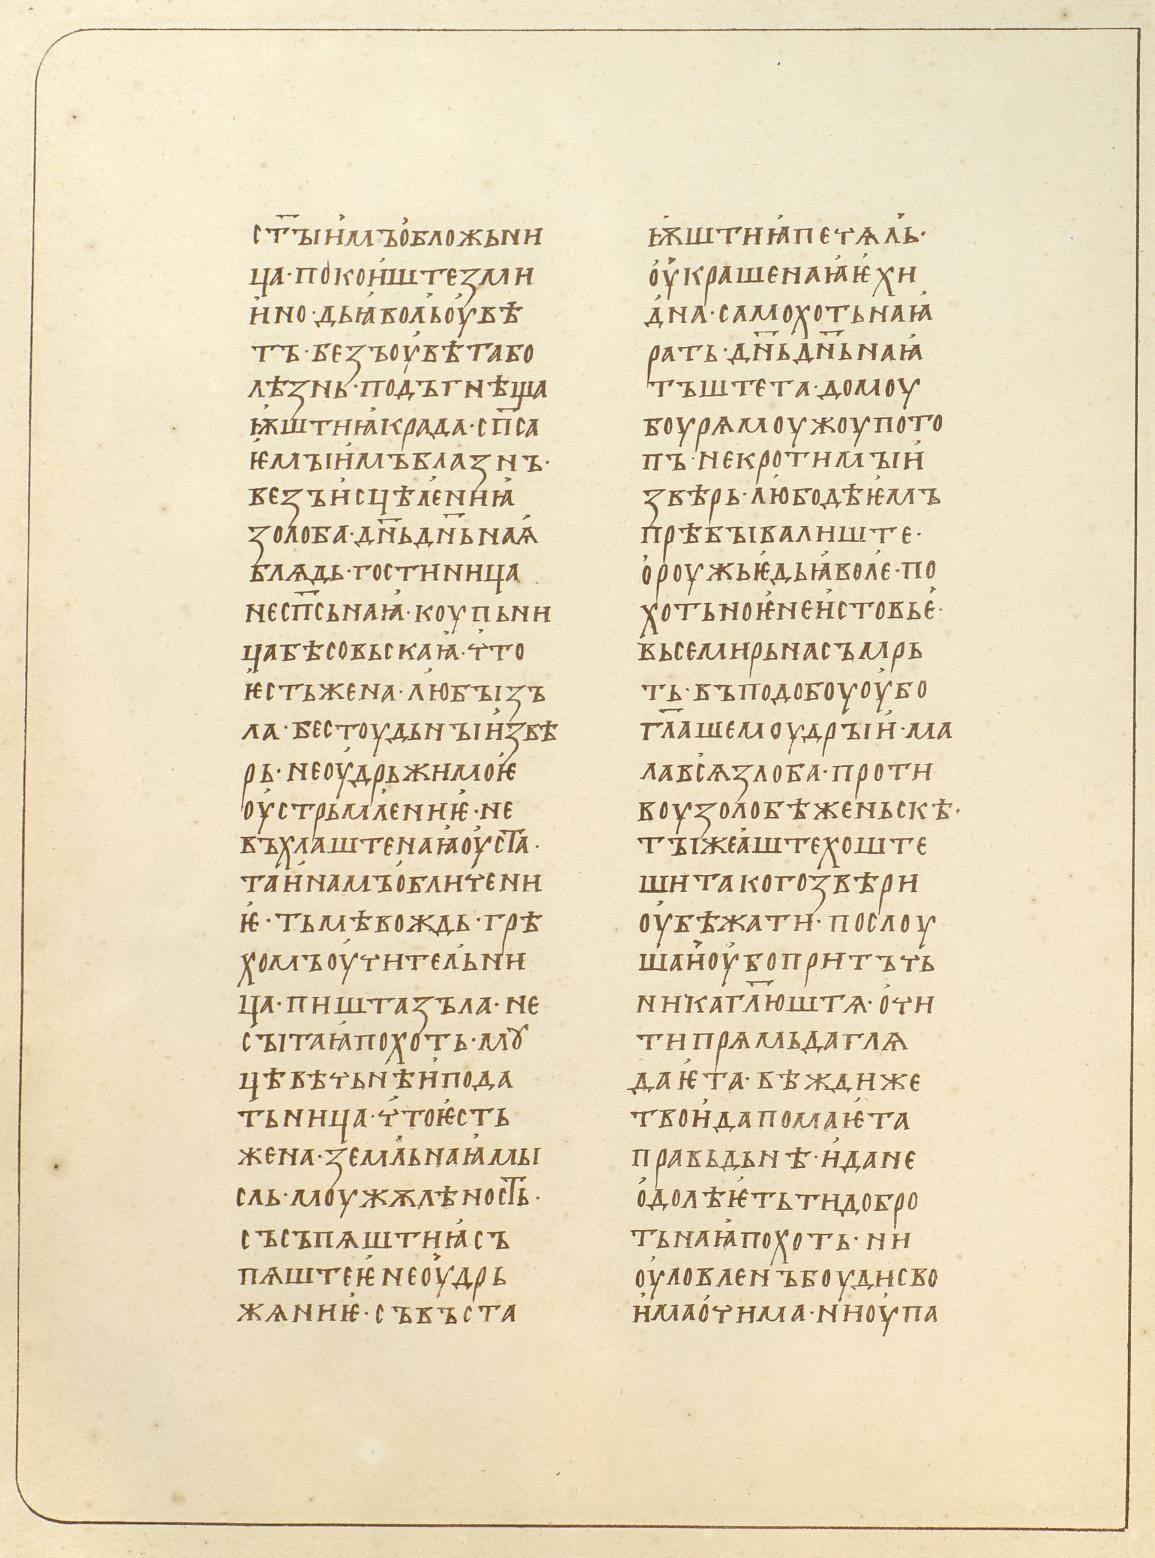 ст҃ыи҆мъо҆бложьни
ца·покои҆штезми
и҆но·дьꙗ҆вольоу҆вѣ
тъ·безъоу҆вѣтабо
лѣзнь·подъгнѣща
ѭштиꙗ҆крада·сп҃са
ѥмыи҆мъблазнъ·
безъи҆сцѣле҆ниꙗ҆
золоба·дн҃ьдн҃ьнаꙗ҆
блѧдь·гостиница
несп҃сьнаꙗ҆·коупьни
цабѣсовьскаꙗ҆·что
ѥстьжена·любꙑзъ
ла·бестоудьнꙑи҆звѣ
рь·неоу҆дрьжимоѥ
оу҆стрьмл҄ениѥ·не
въхлаштенаꙗоу҆ста҃·
таи҆намъо҆бличени
ѥ·тьмѣвождь·грѣ
хомъоу҆чител҄ьни
ца·пиштазъла·не
сꙑтаꙗ҆похоть·мꙋ
цѣвѣчьнѣи҆пода
тьница·чтоѥсть
жена·земл҄ьнаꙗ҆мꙑ
сль·моужѫлѣност҃ь·
съсъпѧштиꙗ҆съ
пѧштеѥнеоу҆дрь
жѧниѥ·съвъста
ѭштиꙗ҆печѧл҄ь·
оу҆крашенаꙗ҆ѥхи
д҆на·самохотьнаꙗ҆
рать·дн҃ьдн҃ьнаꙗ҆
тъштета·домоу
боурѧмоужоупото
пъ·некротимꙑи҆
звѣрь·любодѣѥмъ
прѣбꙑвалиште·
о҆роужьѥдьꙗ҆вол҄е·по
хотьноѥнеи҆стовьѥ·
вьсемирьнасъмрь
ть·въподобоуоу҆бо
гл҃ашемоудрꙑи҆·ма
лавсꙗзлоба·проти
воузолобѣженьскѣ·
тꙑжеа҆штехоште
шитакогозвѣри
оу҆бѣжати·послоу
шаи҆оу҆бопритъчь
никагл҃юштѧ·о҆чи
типрѧмьдаглѧ
даѥта·вѣждиже
твои҆дапомаѥта
правьдьнѣ·и҆дане
о҆долѣѥтьтидобро
тьнаꙗ҆похоть·ни
оу҆ловленъбоудисво
и҆мао҆чима·ниоу҆па